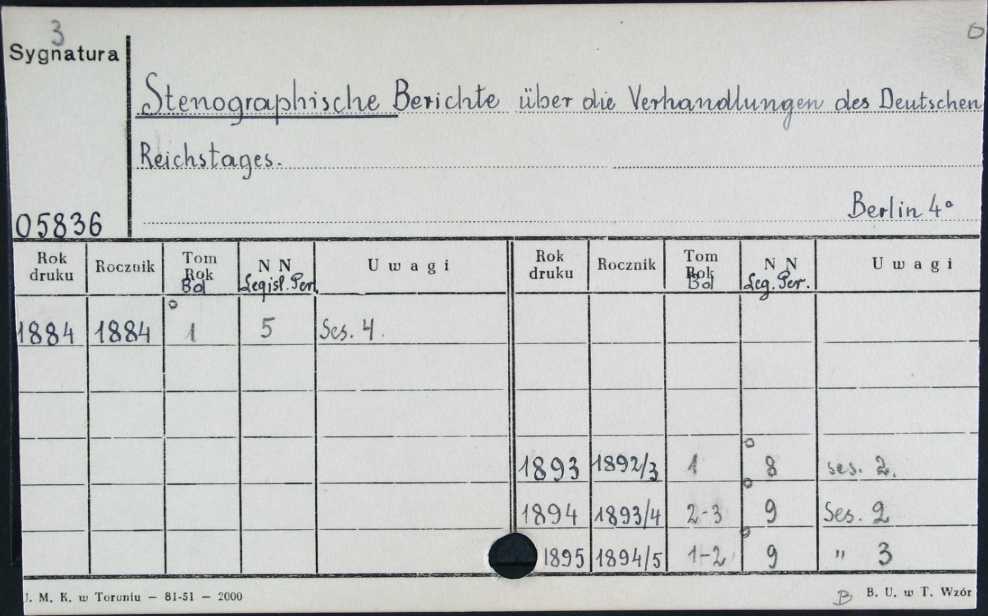 3
Sygnatura
Stenographische Berichte über die Verhandlungen des Deutschen
Reichstages.
Berlin 4°
05836
Rok druku Rocznik Tom Rok Bd NN Legisl. Per. Uwagi Rok druku Rocznik Tom Rok Bd NN Leg. Per. Uwagi
1884 1884 1 5 Ses. 4.
1893 1892/3 1 8 ses. 2.
1894 1893/4 2-3 9 Ses. 2
1895 1894/5 1-2 9 " 3
U. M. K. w Toruniu — 81-51 — 2000 B B. U. w T. Wzór